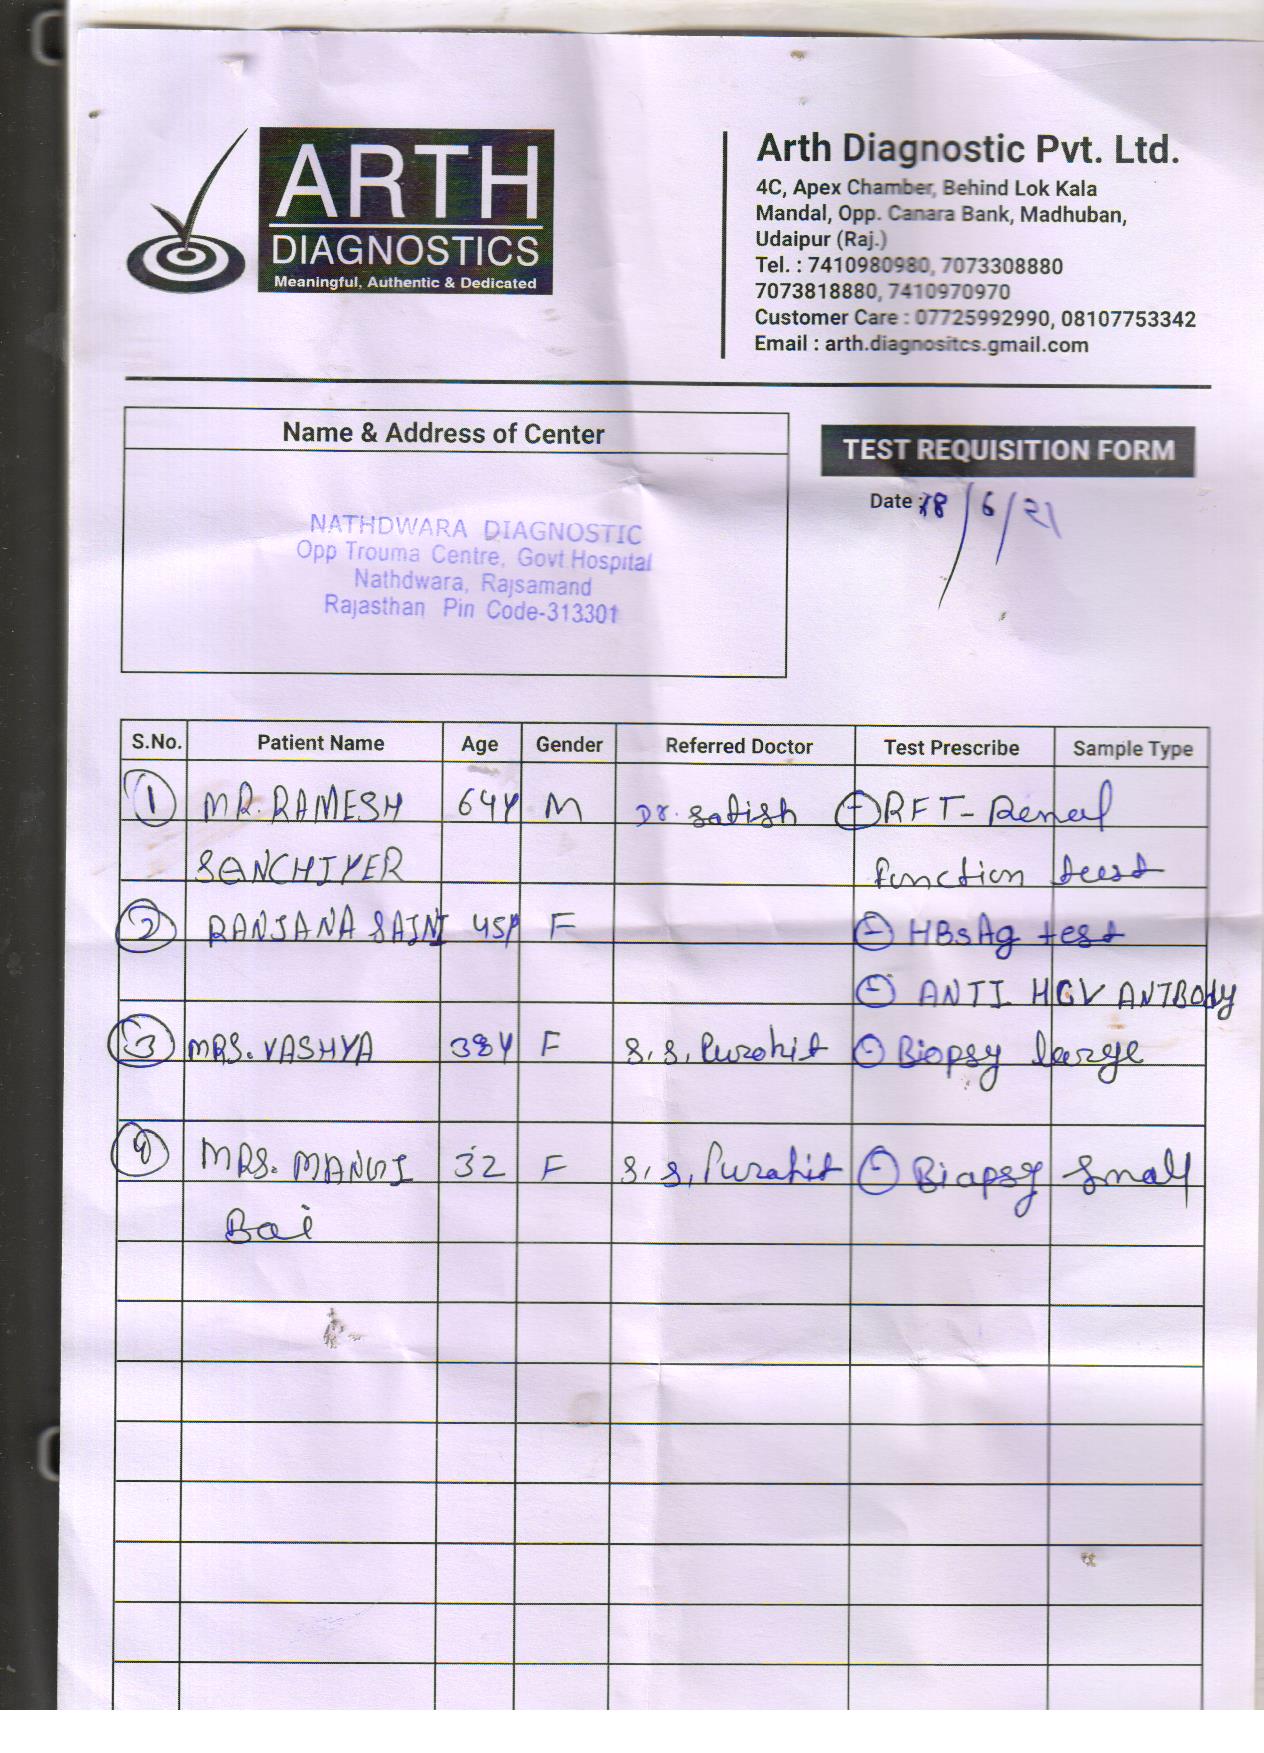 ARTH
DIAGNOSTICS
Meaningful, Authentic & Dedicated
Arth Diagnostic Pvt. Ltd.
4C, Apex Chamber, Behind Lok Kala
Mandal, Opp. Canara Bank, Madhuban,
Udaipur (Raj.)
Tel. : 7410980980, 7073308880
7073818880, 7410970970
Customer Care : 07725992990, 08107753342
Email : arth.diagnositcs.gmail.com
Name & Address of Center
NATHDWARA DIAGNOSTIC
Opp Trouma Centre, Govt Hospital
Nathdwara, Rajsamand
Rajasthan Pin Code-313301
TEST REQUISITION FORM
Date : 18/6/21
S.No. Patient Name Age Gender Referred Doctor Test Prescribe Sample Type
1 MR. RAMESH 64Y M Dr. Satish RFT - Renal
SANCHIYER function test
2 RANJANA SAINI 45Y F HBsAg test
ANTI HCV ANTBODY
3 MRS. VASHYA 38Y F S. S. Purohit Biopsy large
4 MRS. MANGI 32 F S. S. Purohit Biopsy Small
Bai